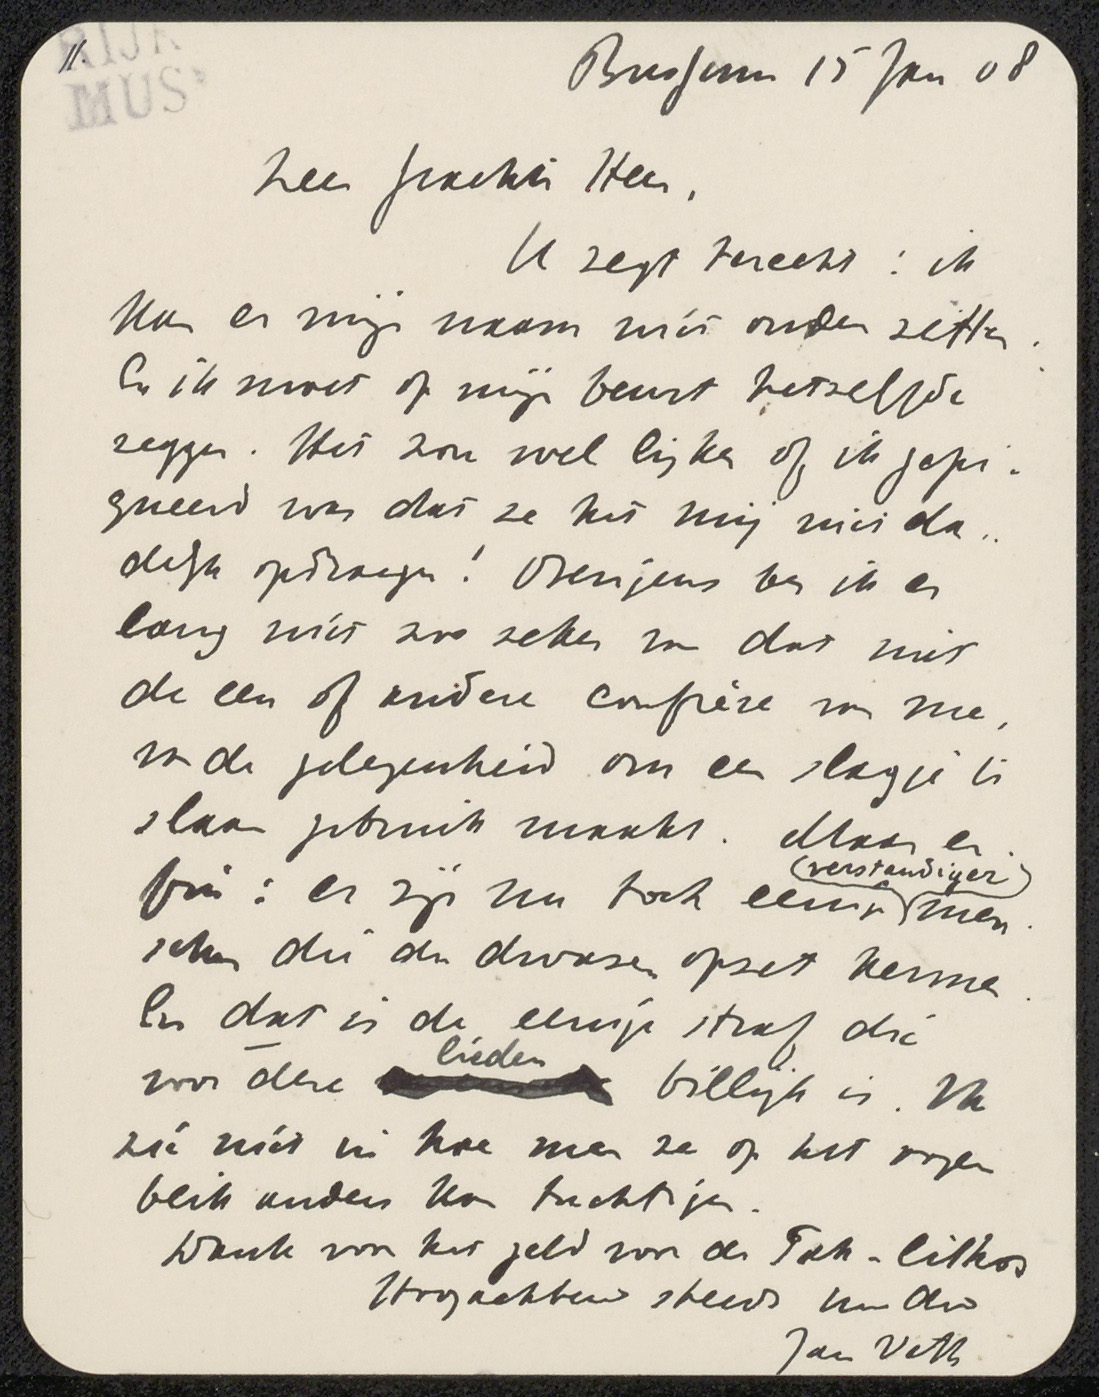 11.
RIJK
MUS
Bussum 15 Jan 08
Zeer geachte Heer,
U zegt terecht : ik
kan er mijn naam niet onder zetten.
En ik moet op mijn beurt hetzelfde
zeggen. Het zou wel lijken of ik gepi-
queerd was dat ze het mij niet da-
delijk opdroegen! Overigens ben ik er
lang niet zoo zeker van dat niet
de een of andere confrère van me,
van de gelegenheid om een slagje te
slaan gebruik maakt. Maar en-
fin : er zijn nu toch eenige (verstandiger) men-
schen die den dwazen opzet kennen.
En dat is de eenige straf die
voor deze lieden billijk is. Ik
zie niet in hoe men ze op het oogen
blik anders kan tuchtigen.
Dank voor het geld voor de Tak-lithos
Hoogachtend steeds uw dw
Jan Veth